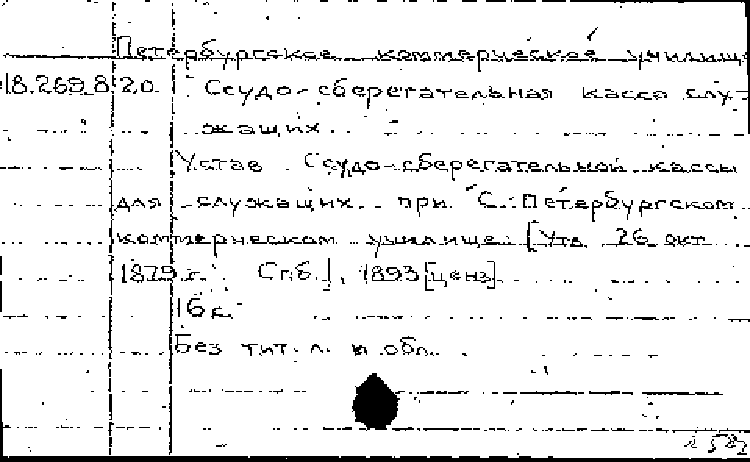 Петербургское коммерческое училище
18.269.8.20. Ссудо-сберегательная касса слу-
жащих.
Устав Ссудо-сберегательной кассы
для служащих при С.-Петербургском
коммерческом училище. [Утв. 26 окт.
1879 г. Спб.], 1893 [ценз].
16 с.
Без тит. л. и обл.